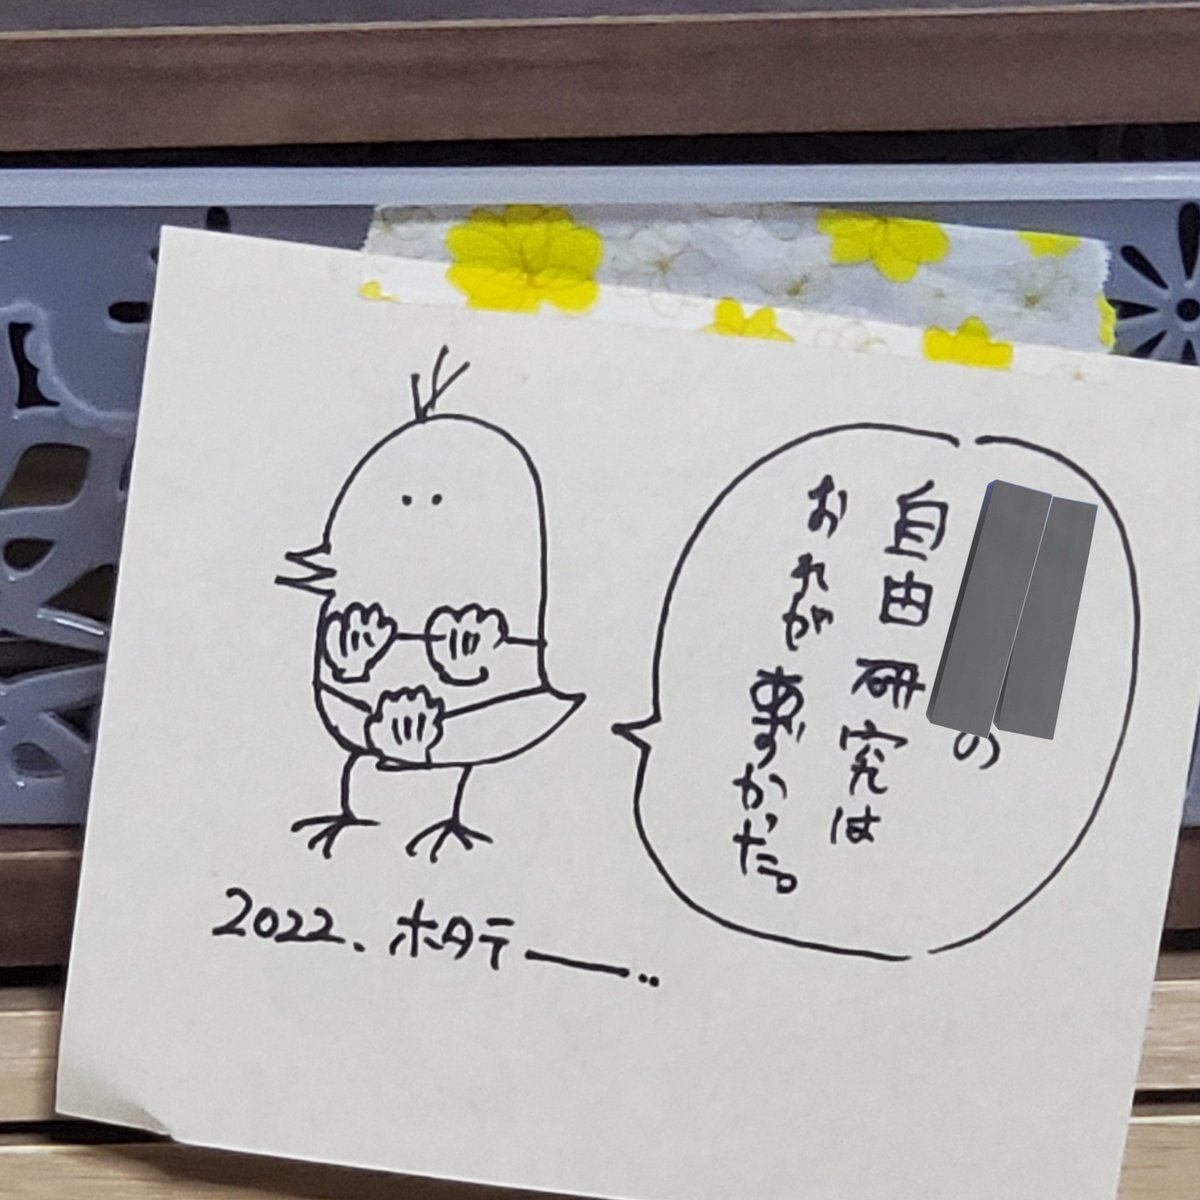 の
自由研究は
おれが
あずかった。
2022. ホタテ——..